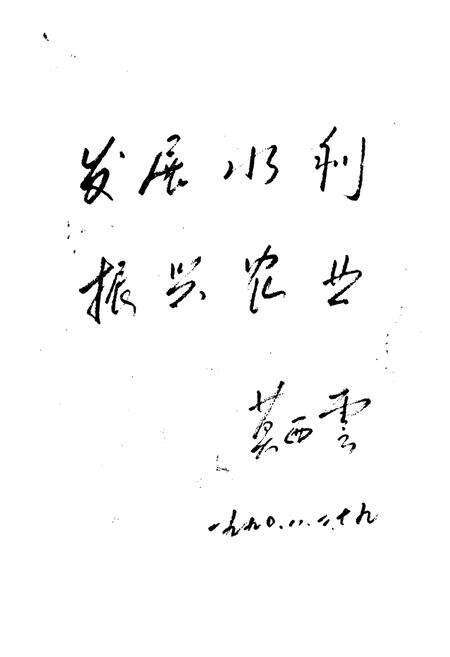 发展水利
振兴农业
莫西雲
一九九〇.八.二十九